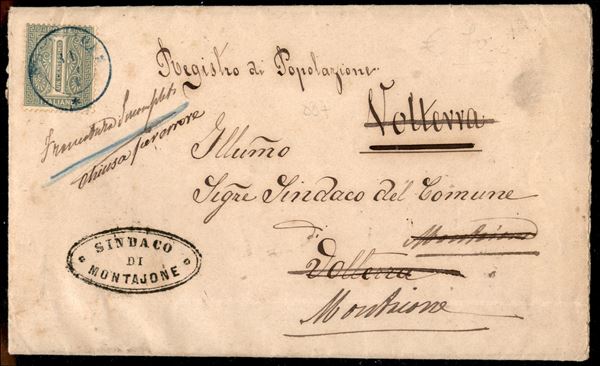 ITALIANE
Registro di Popolazione
Francatura Incompleta
chiusa per errore
Volterra
Illumo
Sigre Sindaco del Comune
di
Volterra
Montajone
SINDACO
DI
MONTAJONE